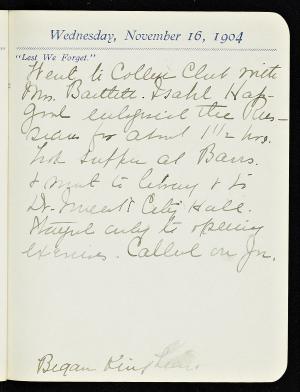 Wednesday, November 16, 1904
"Lest We Forget."
Went to College Club with
Mrs. Bartlett. Isabel Hap-
good eulogized the Rus-
sians for about 1 1/2 hrs.
Hot supper at Bans.
& went to library & to
City Hall.
Stayed only to opening
exercises. Called on Jn.
Began King Lear.